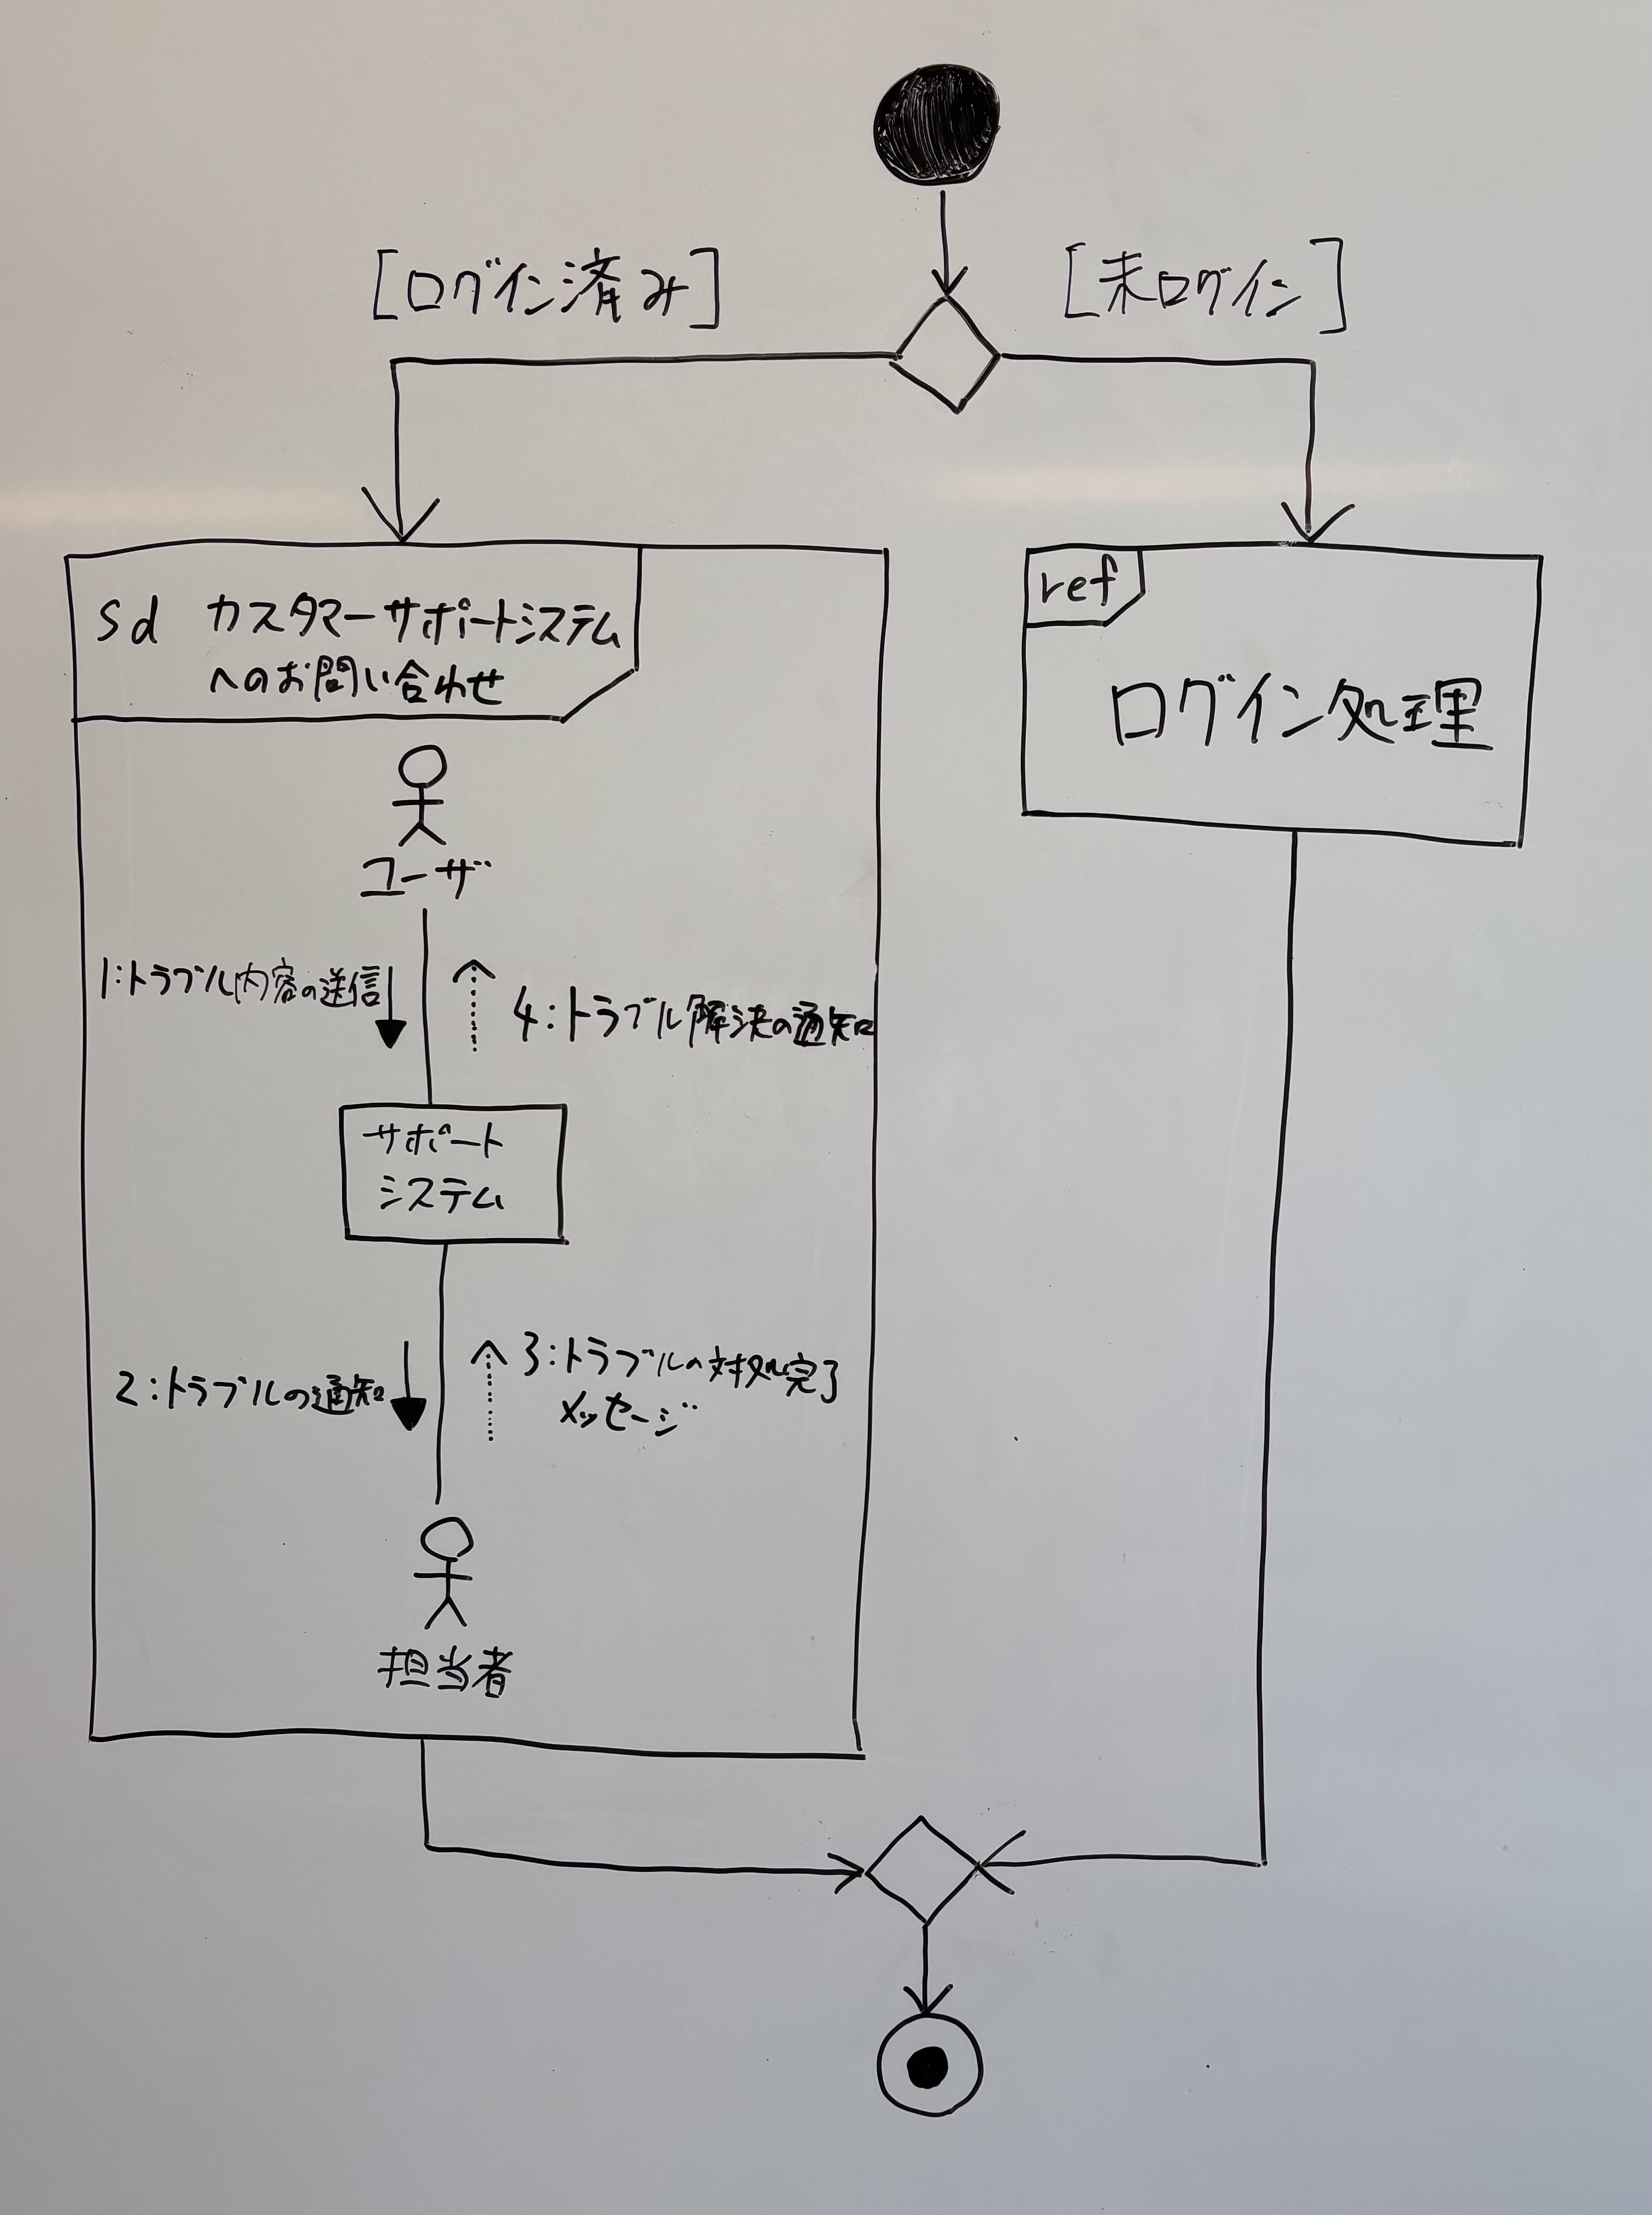 [ログイン済み]
[未ログイン]
sd カスタマーサポートシステム
へのお問い合わせ
ref
ログイン処理
ユーザ
1:トラブル内容の送信
4:トラブル解決の通知
サポート
システム
2:トラブルの通知
3:トラブルの対処完了
メッセージ
担当者